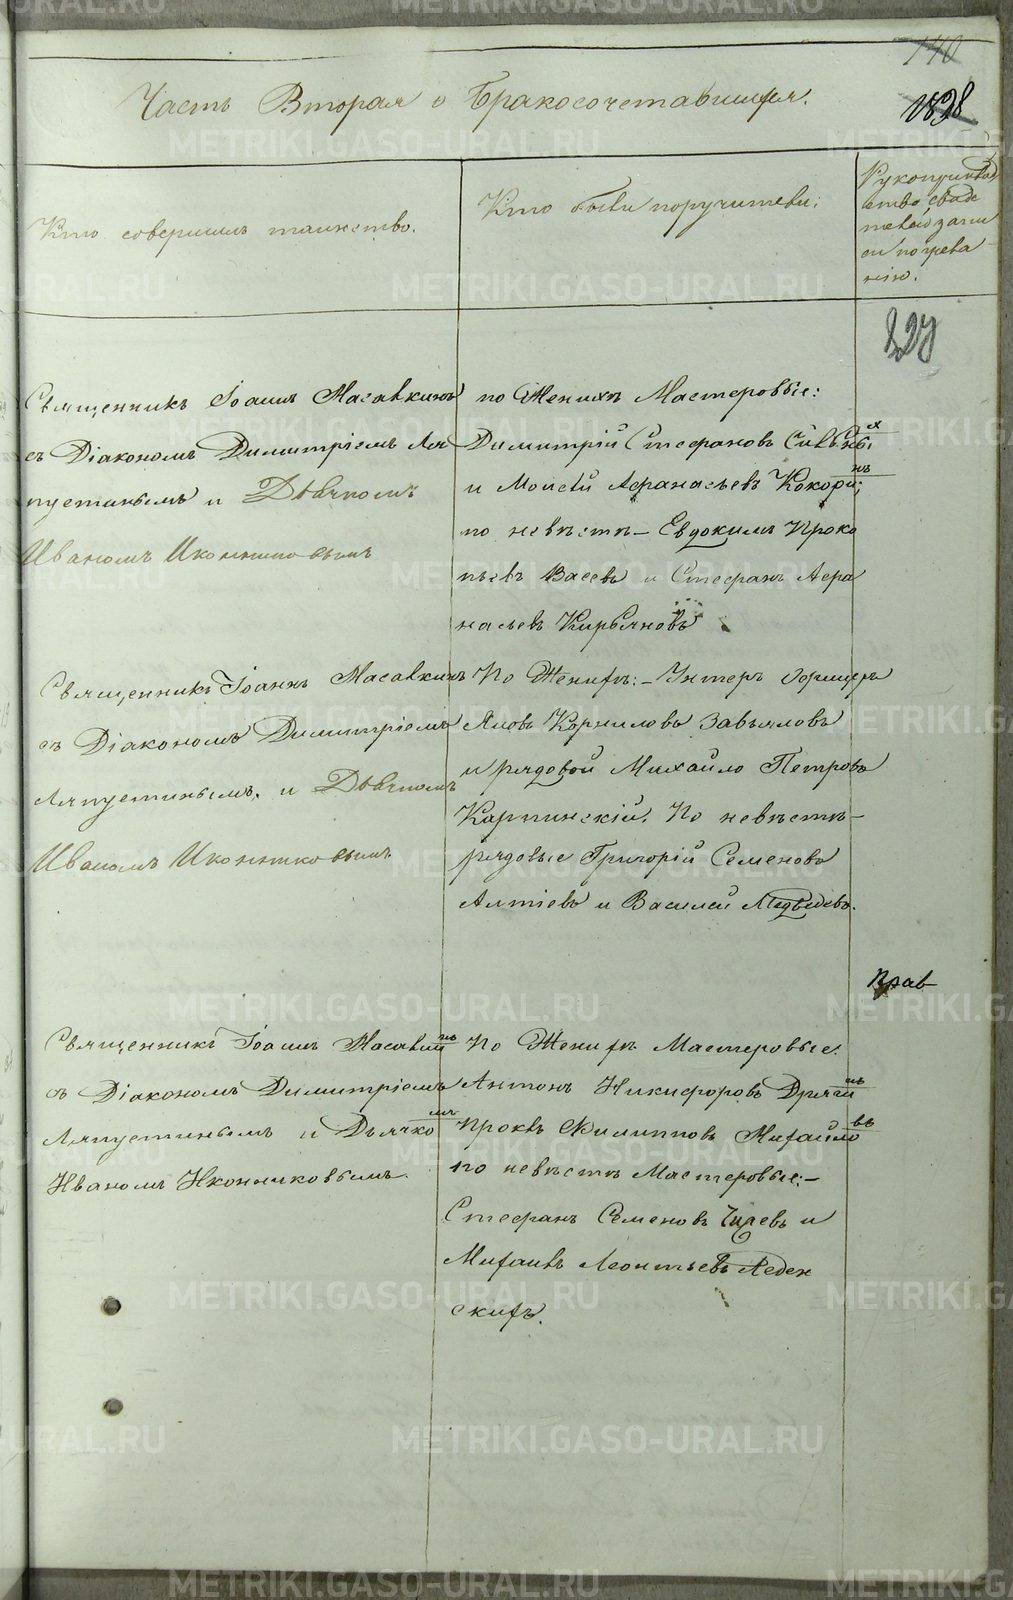 140
1828
Часть Вторая о Бракосочетавшихся.
Кто совершилъ таинство.
Кто были поручители:
Рукоприклад
ство свидѣ
телей записи
по
нію.
227
Священникъ Іоаннъ Масавкинъ
съ Діакономъ Димитріемъ Ля
пустинымъ и Дьячкомъ
Иваномъ Иконниковымъ
по Женихѣ Мастеровые:
Димитрій Стефановъ Сивыхъ
и Моисей Афанасьевъ Кокоринъ;
по невѣстѣ – Евдокимъ Проко
пьевъ Васевъ и Стефанъ Афа
насьевъ Кирьяновъ
Священникъ Іоаннъ Масавкинъ
съ Діакономъ Димитріемъ
Ляпустинымъ. и Дьячкомъ
Иваномъ Иконниковымъ.
По Женихѣ: – Унтеръ Офицеръ
Яковъ Корниловъ Завьяловъ
и рядовой Михайло Петровъ
Карпинскій. По невѣстѣ –
рядовые Григорій Семеновъ
Алтіевъ и Василей Медвѣдевъ.
Прав
Священникъ Іоаннъ Масавкинъ
съ Діакономъ Димитріемъ
Ляпустинымъ и Дьячкомъ
Иваномъ Иконниковымъ.
По Женихѣ Мастеровые:
Антонъ Никифоровъ Дрягинъ
Проклъ Филипповъ Михайловъ
по невѣстѣ Мастеровые: –
Стефанъ Семеновъ и
Михаилъ Леонтьевъ Леден
скихъ.
METRIKI.GASO-URAL.RU